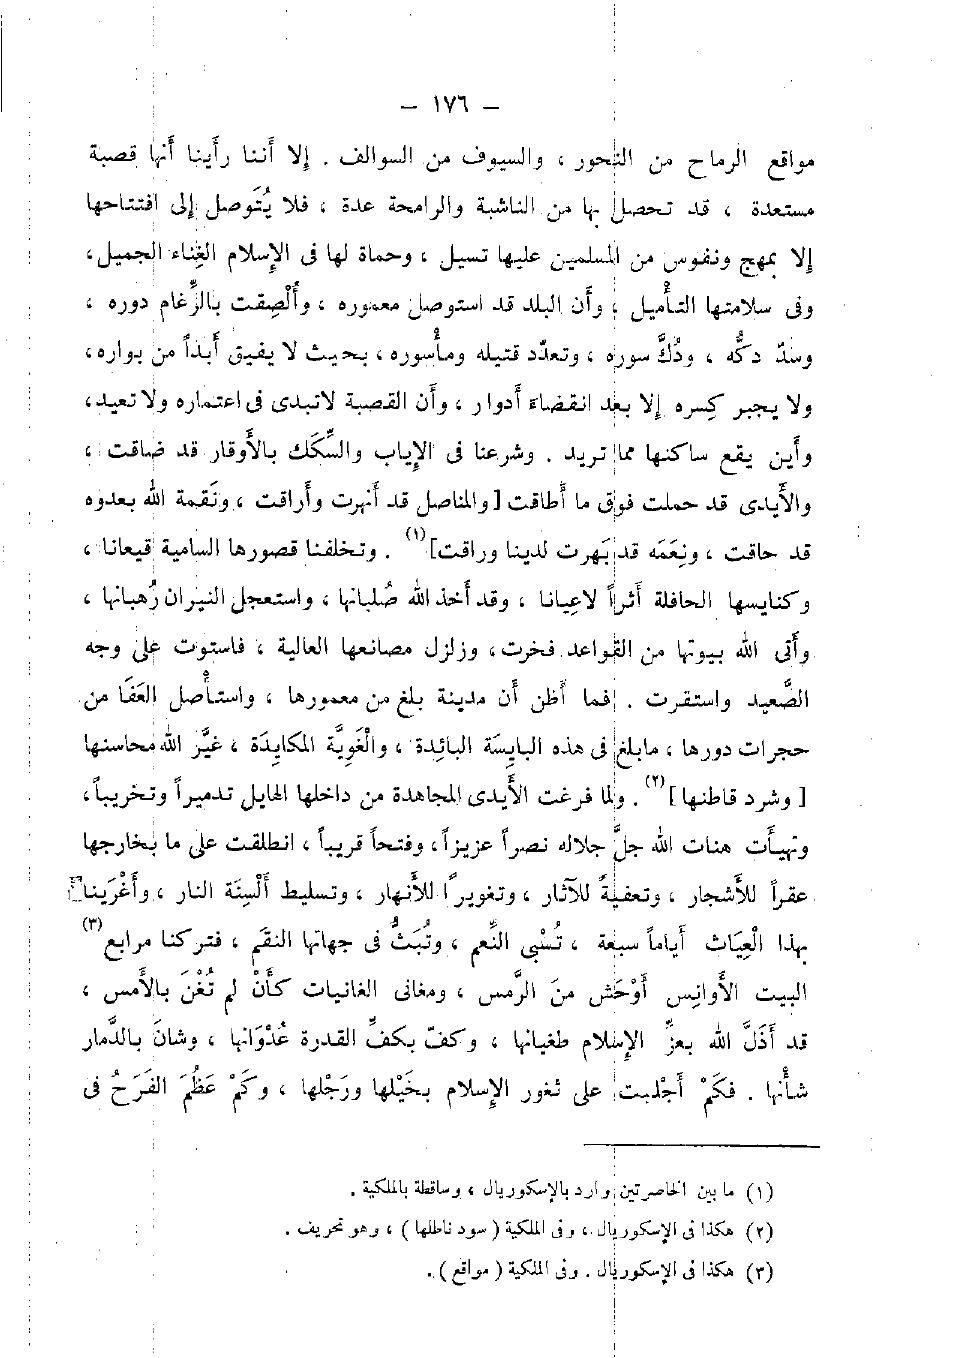 — ١٧٦ —
مواقع الرماح من النحور ، والسيوف من السوالف . إلا أننا رأينا أنها قصبة
مستعدة ، قد تحصل بها من الناشبة والرامحة عدة ، فلا يُتَوصل إلى افتتاحها
إلا بمهج ونفوس من المسلمين عليها تسيل ، وحماة لها فى الإسلام الغِناء الجميل ،
وفى سلامتها التأميل ، وأن البلد قد استوصل معموره ، وأُلْصِقت بالرَّغام دوره ،
وسدّ دكُّه ، ودُكَّ سوره ، وتعدّد قتيله ومأسوره ، بحيث لا يفيق أبداً من بواره ،
ولا يجبر كِسره إلا بعد انقضاء أدوار ، وأن القصبة لاتبدى فى اعتماره ولا تعيد ،
وأين يقع ساكنها مما تريد . وشرعنا فى الإياب والسِّكَك بالأوقار قد ضاقت ،
والأيدى قد حملت فوق ما أطاقت [ والمناصل قد أنهرت وأراقت ، ونَقمة الله بعدوه
قد حاقت ، ونِعَمَه قد بَهرت لدينا وراقت ](١) . وتخلفنا قصورها السامية قيعانا ،
وكنايسها الحافلة أثراً لاعِيانا ، وقد أخذ الله صُلبانها ، واستعجل النيران رُهبانها ،
وأتى الله بيوتها من القواعد فخرت ، وزلزل مصانعها العالية ، فاستوت على وجه
الصَّعيد واستقرت . فما أظن أن مدينة بلغ من معمورها ، واستأصل العَفَا من
حجرات دورها ، مابلغ فى هذه البايسَة البائِدة ، والْغَوِيَّة المكايِدَة ، غيَّر الله محاسنها
[ وشرد قاطنها ](٢) . ولما فرغت الأيدى المجاهدة من داخلها الهايل تدميراً وتخريباً ،
وتهيأت هنات الله جلَّ جلاله نصراً عزيزاً ، وفتحاً قريباً ، انطلقت على ما بخارجها
عقراً للأشجار ، وتعفيةً للآثار ، وتغويرًا للأنهار ، وتسليط ألْسِنَة النار ، وأغْرَينا
بهذا الْعِيَاث أياماً سبعة ، تُسْبى النِّعم ، وتُبَثُّ فى جهاتها النقَم ، فتركنا مرابع(٣)
البيت الأوانِس أوْحَش منَ الرَّمس ، ومغانى الغانيات كأنْ لم تُغْنَ بالأمس ،
قد أذَلَّ الله بعزِّ الإسلام طغيانها ، وكفّ بكفِّ القدرة عُدْوَانها ، وشانَ بالدَّمار
شأنُها . فكَمْ أجْلبت على ثغور الإسلام بخَيْلها ورَجْلها ، وكَمْ عَظُمَ الفَرَحُ فى
(١) ما بين الخاصرتين وارد بالإسكوريال ، وساقطة بالملكية .
(٢) هكذا فى الإسكوريال ، وفى الملكية ( سود ناطلها ) ، وهو تحريف .
(٣) هكذا فى الإسكوريال . وفى الملكية ( مواقع ) .